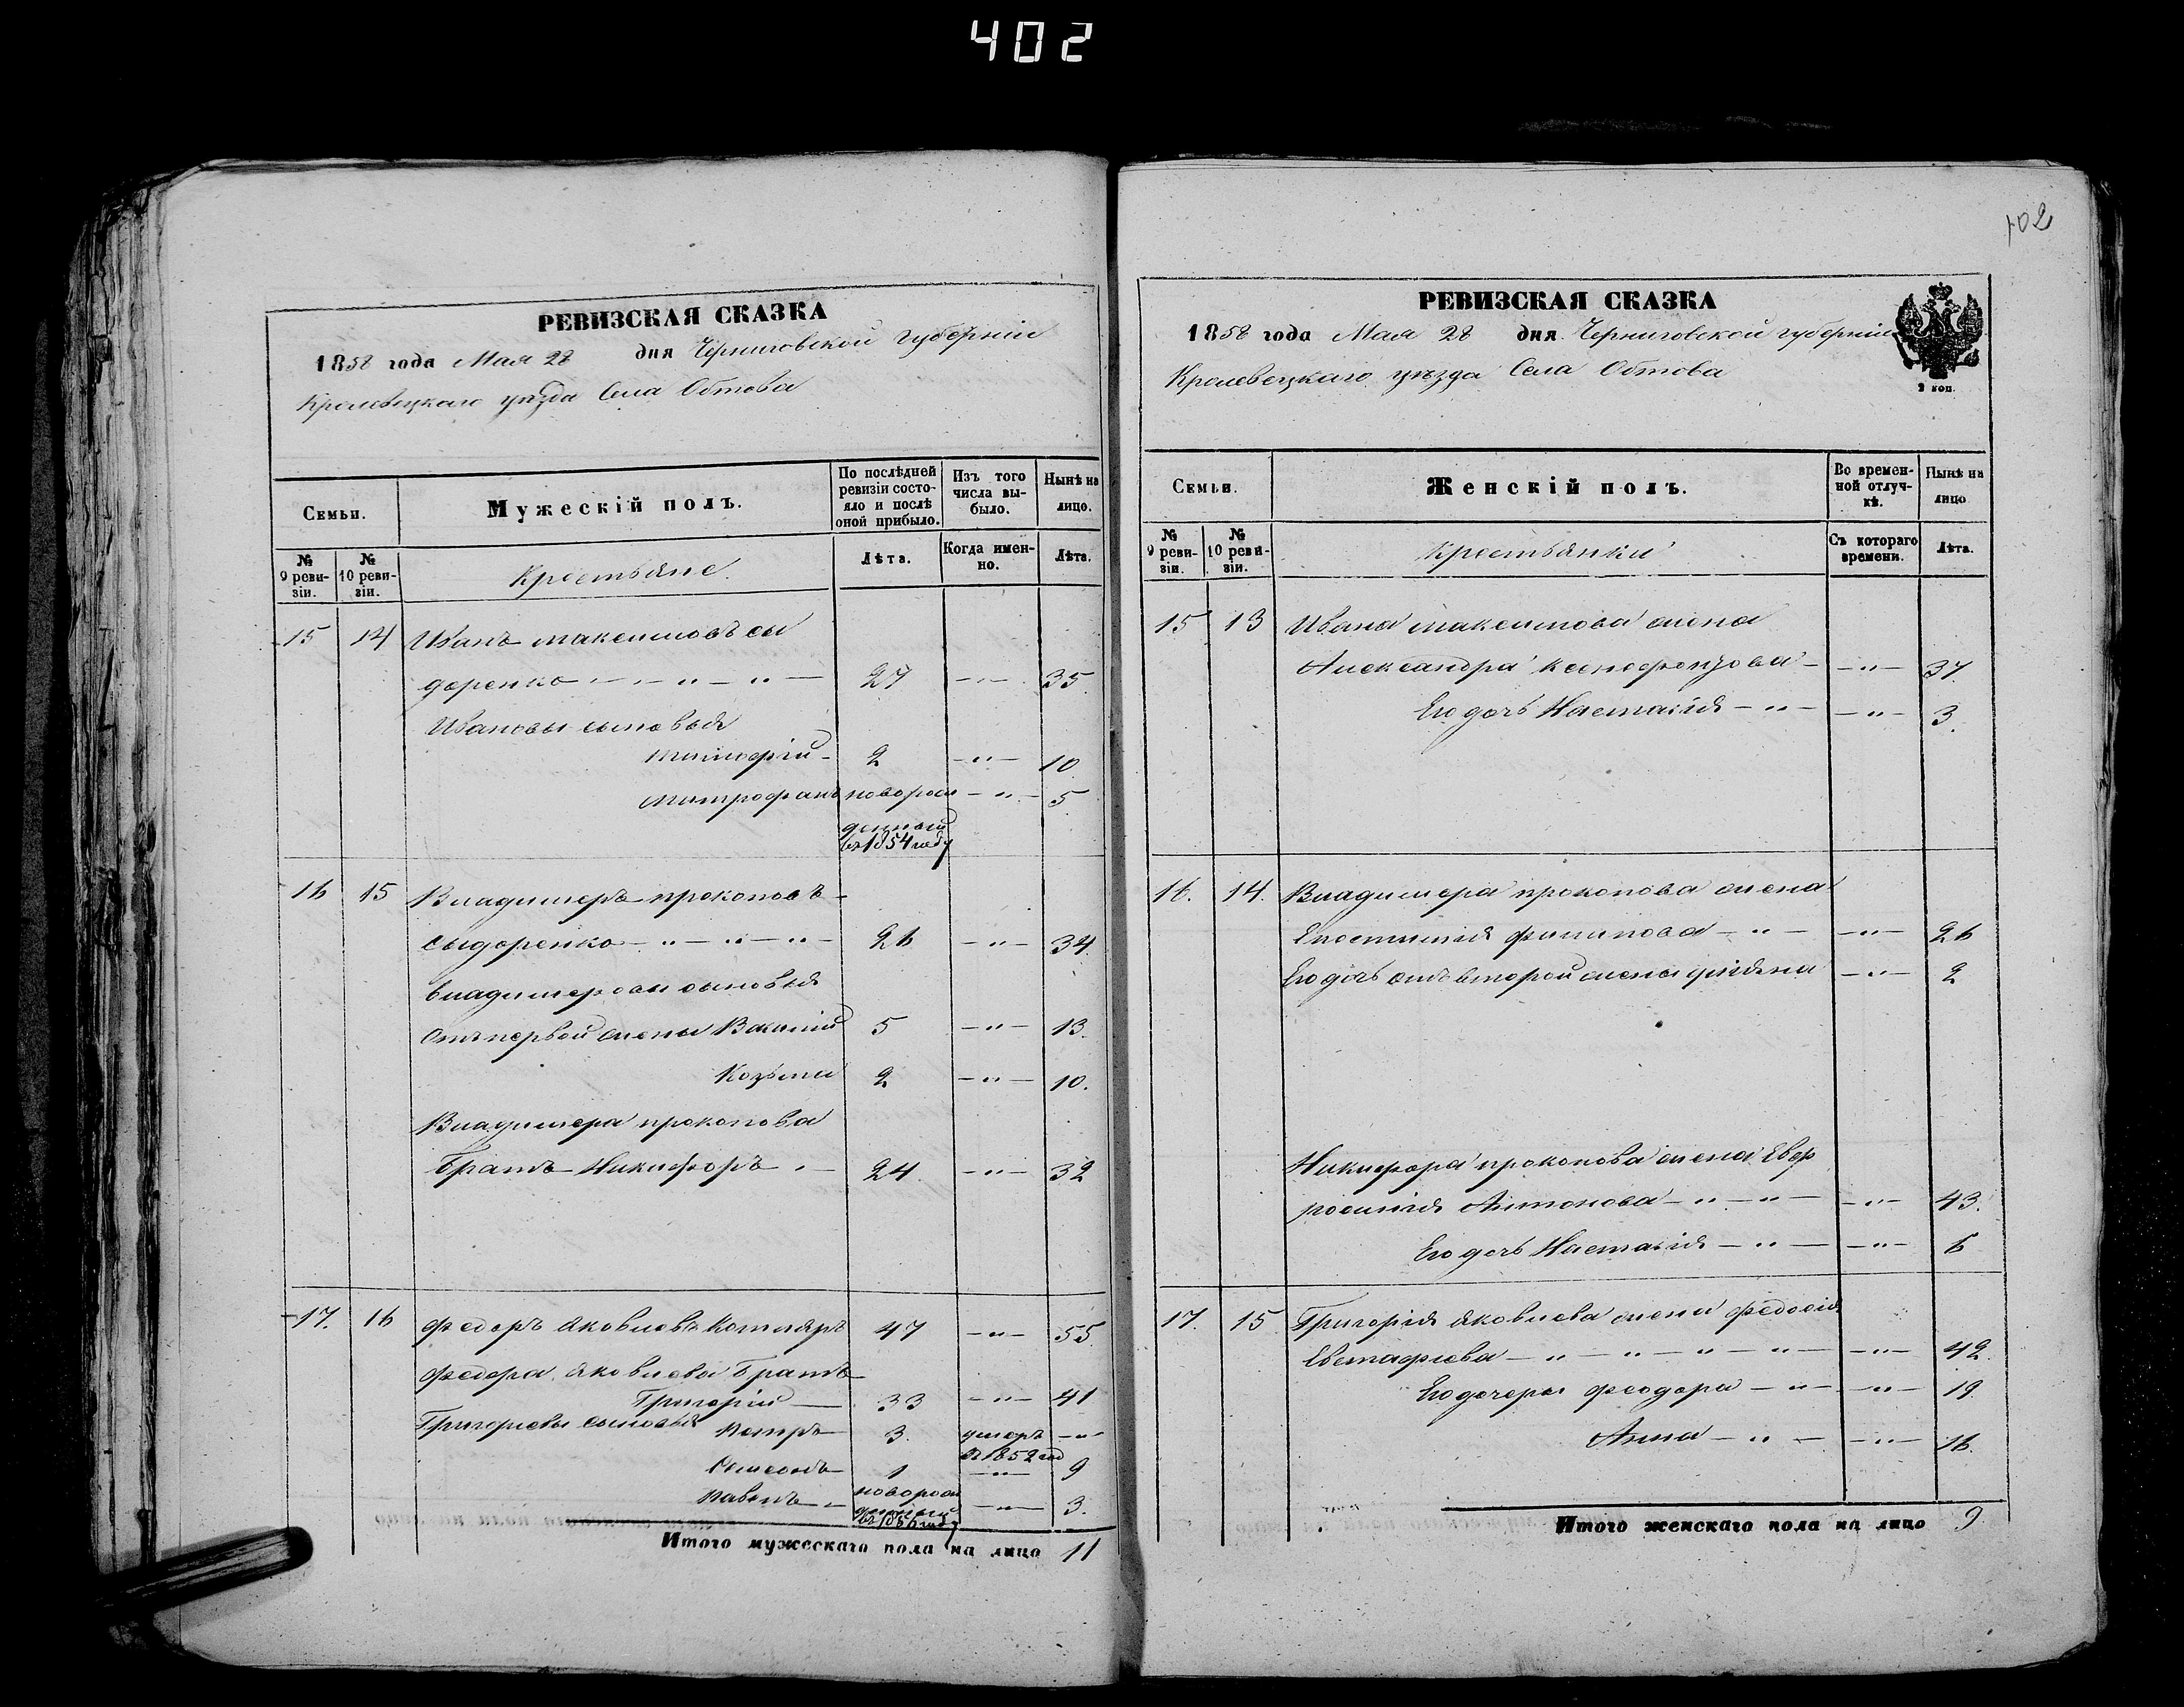 402
102
РЕВИЗСКАЯ СКАЗКА
1858 года Мая 28 дня Черниговской губерніи
Кролевецкаго уѣзда Села Обтова
Семьи.
Мужескій полъ.
По послѣдней ревизіи состояло и послѣ оной прибыло.
Изъ того числа выбыло.
Нынѣ на лицо.
№ 9 ревизіи.
№ 10 ревизіи.
Крестьяне
Лѣта.
Когда именно.
Лѣта.
15 14 Иванъ максимовъ сы
доренко — " — " — 27 — " — 35.
Ивановы сыновья
тимофій — 2 — " — 10
митрофанъ новорож — " — 5
денный
въ 1854 году
16 15 Владимеръ прокоповъ —
Сыдоренко — " — " — " — 26 — " — 34.
владимеровы сыновья
отъ первой жены Василий 5 — " — 13.
Козьма 2 — " — 10.
Владимера прокопова
Братъ Никифоръ — 24 — " — 32
17. 16 Федоръ Яковлевъ Котляръ 47 — " — 55
Федора Яковлева Братъ
Григорій — 33 — " — 41
Григорьевы сыновья Петръ 3. умеръ — "
въ 1852 год
Самсонъ 1 — " — 9
Павелъ — новорож — " — 3.
денный
Итого мужескаго пола на лицо 11
РЕВИЗСКАЯ СКАЗКА
1858 года Мая 28 дня Черниговской губерніи
Кролевецкаго уѣзда Села Обтова
2 коп.
Семьи.
Женскій полъ.
Во временной отлучкѣ.
Нынѣ на лицо
№ 9 ревизіи.
№ 10 ревизіи.
Крестьянки
Съ котораго времени.
Лѣта.
15 13 Ивана максимова жена
Александра ксенофонтова — — " — 37
Его дочь Настасія — " — — " — 3.
16. 14. Владимера прокопова жена
филипова — " — — " — 26
Его дочь отъ второй жены уліяна — " — 2
Никифора прокопова жена Евф
росинія Антонова — " — " — — " — 43.
Его дочь Настасія — " — — " — 6
17. 15 Григорія Яковлева жена федосія
Евстафіева — " — " — " — " — — " — 42.
Его дочеры феодора — " — — " — 19
Анна — " — — " — 16.
Итого женскаго пола на лицо 9